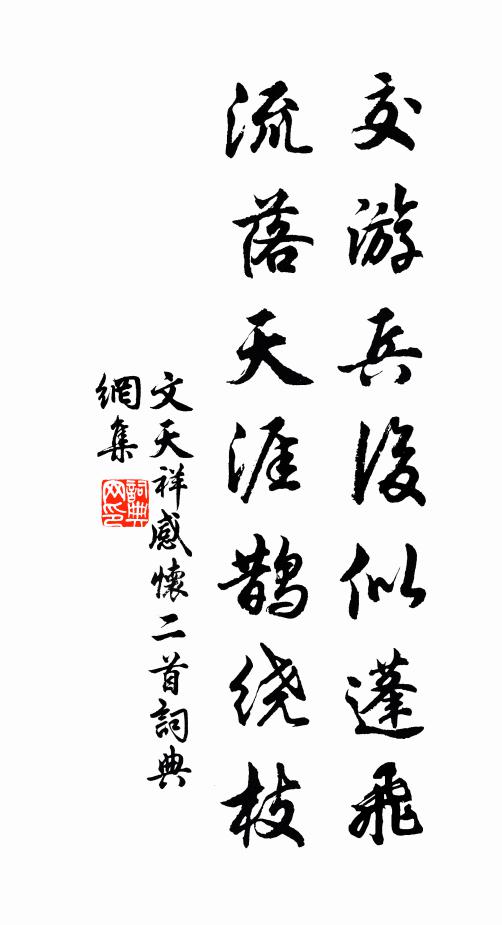 交游兵後似蓬飛
流落天涯鹊绕枝
文天祥感懷二首詞典
網集
詞典
网印